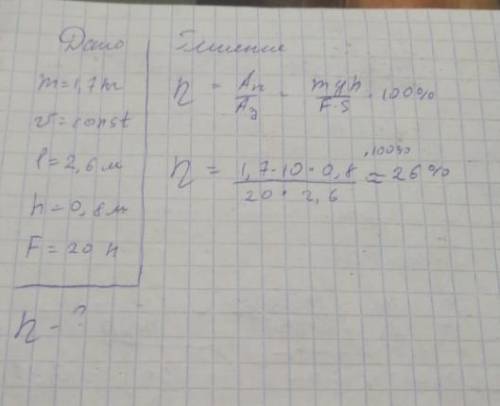 Дано
m = 1,7 кг
v = const
l = 2,6 м
h = 0,8 м
F = 20 Н
η - ?
Решение
η = Aп/Aз = mgh/F·S · 100%
η = 1,7·10·0,8/20·2,6 ·100% ≈ 26%